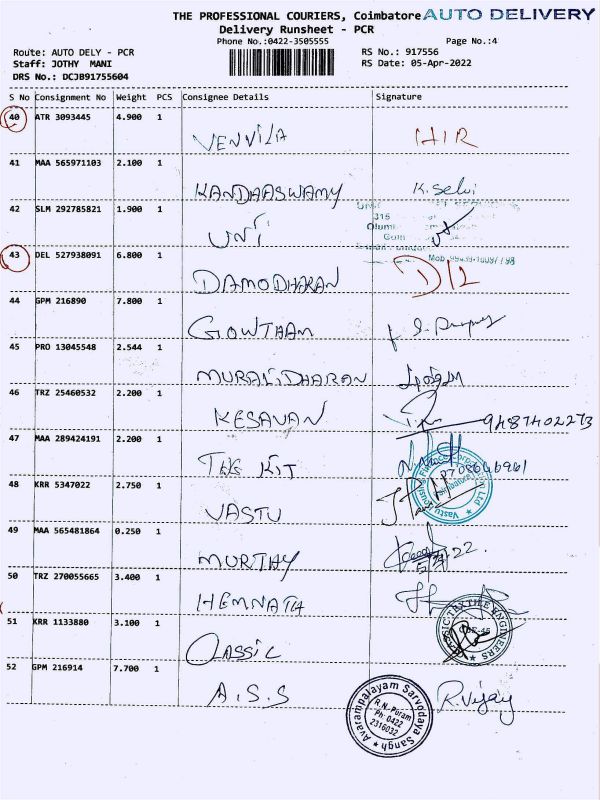 THE PROFESSIONAL COURIERS, Coimbatore AUTO DELIVERY
Delivery Runsheet - PCR
Phone No.:0422-3505555 Page No.:4
Route: AUTO DELY - PCR RS No.: 917556
Staff: JOTHY MANI RS Date: 05-Apr-2022
DRS No.: DCJB91755604
S No Consignment No Weight PCS Consignee Details Signature
40 ATR 3093445 4.900 1
VENVILA HIR
41 MAA 565971103 2.100 1
KANDAASWAMY K. Selvi
42 SLM 292785821 1.900 1
315
UNI
43 DEL 527938091 6.800 1
DAMODHARAN D/L
44 GPM 216890 7.800 1
GOWTHAM
45 PRO 13045548 2.544 1
MURALIDHARAN
46 TRZ 25460532 2.200 1
KESAVAN 9487402273
47 MAA 289424191 2.200 1
KIT
48 KRR 5347022 2.750 1
VASTU
49 MAA 565481864 0.250 1
MURTHY 5/4/22.
50 TRZ 270055665 3.400 1
HEMNATH
51 KRR 1133880 3.100 1
CLASSIC
52 GPM 216914 7.700 1
A.S.S R. Vijay
Avarampalayam Sarvodaya Sangh
R.N. Puram
Ph: 0422
2316032